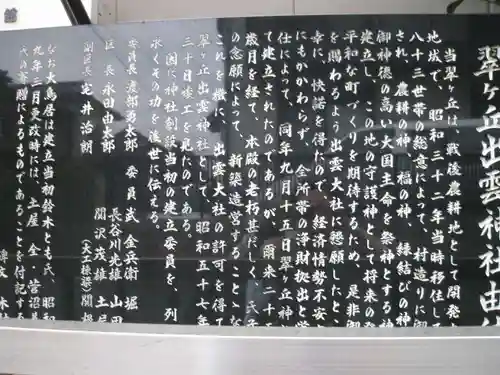 翠ケ丘出雲神社由
当翠ヶ丘は、戦後農耕地として開発
地域で、昭和三十二年当時移住して
八十三世帯の総意によって、村造りに御
され、農耕の神、福の神、縁結びの神
御神徳の高い大国主命を祭神とする神
建立し、この地の守護神として将来の発
平和な町づくりを期待するため、是非御
を賜わるよう出雲大社に懇願したとこ
幸に、快諾を得たので、経済情勢不安
にもかかわらず、全所帯の浄財拠出と労
仕によって、同年九月十五日翠ヶ丘神
て建立されたのであるが、爾来二十
歳月を経て、本殿の老朽甚だしく、氏子
の念願によって、新築造営することゝな
これを機に、出雲大社の許可を得て
翠ヶ丘出雲神社として、昭和五十七年
三十日竣工を見たのである。
因に神社創設当初の建立委員を、列
永くその功を後世に伝える。
委員長 渡部勇太郎 委員 武 金兵衛 堀
区長 永田由太郎 長谷川光雄 山田
副区長 定井治朗 関沢茂雄 土
(大工棟梁)関
なお大鳥居は建立当初鈴木とも氏、昭和
九年三月更改時には、土屋 全・菅沼
の寄贈によるものであることを付記する